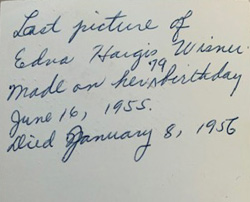 Last picture of
Edna Hargis Wisner.
Made on her 79 birthday
June 16, 1955.
Died January 8, 1956